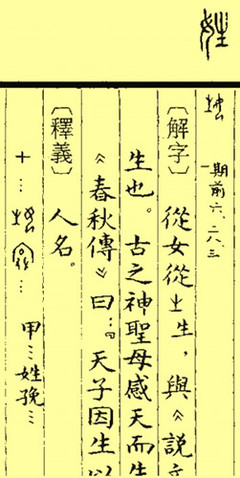 一期前六.二八.三
〔解字〕從女從生，與《說文
生也。古之神聖母感天而生
《春秋傳》曰：『天子因生以
〔釋義〕人名。
甲…姓娩…